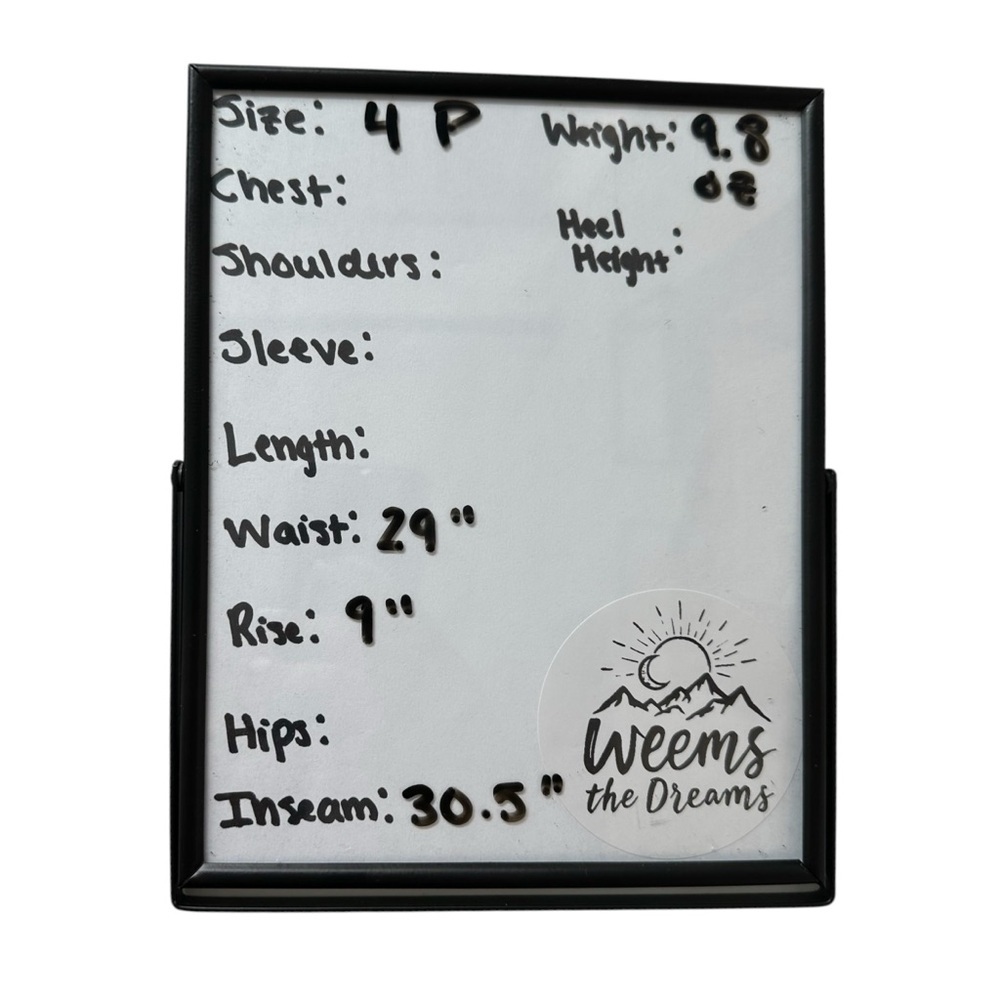 Size: 4 P
Weight: 9.8 oz
Chest:
Heel Height:
Shoulders:
Sleeve:
Length:
Waist: 29"
Rise: 9"
Hips:
Inseam: 30.5"
Weems
the Dreams